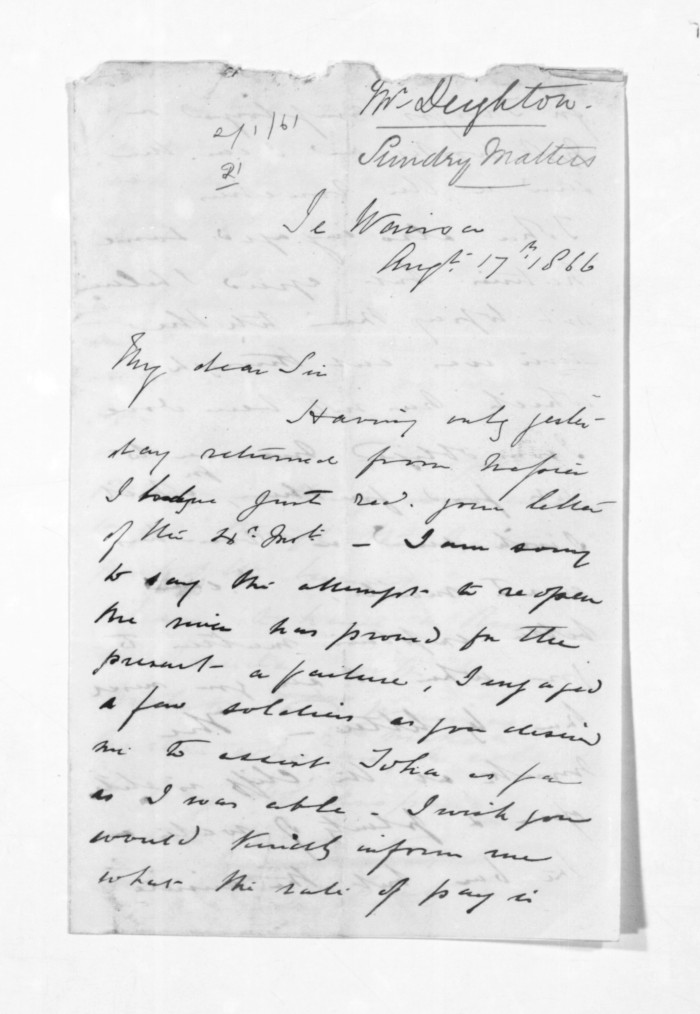 Mr Deighton.
2/1/61
Sundry Matters
21
Te Wairoa
Augt. 17th 1866
My dear Sir
Having only yester-
day returned from Napier
I have just recd. your letter
of the Inst - I am sorry
to say the attempt to reopen
the river has proved for the
present a failure, I engaged
a few soldiers as you desired
me to assist Toha as far
as I was able - I wish you
would kindly inform me
what the rate of pay is